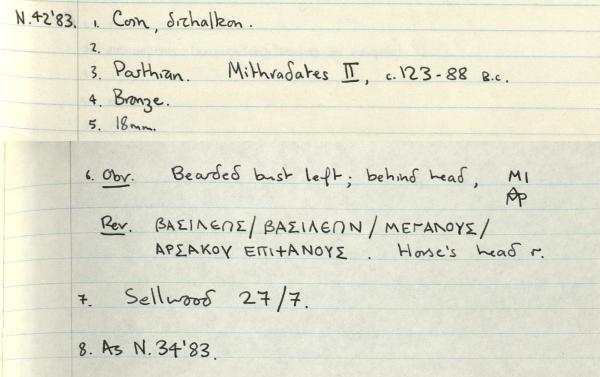 N.42'83. 1. Coin, dichalkon.
2.
3. Parthian. Mithradates II, c.123-88 B.C.
4. Bronze.
5. 18mm.
6. Obv. Bearded bust left; behind head, MI
Rev. ΒΑΣΙΛΕΩΣ/ ΒΑΣΙΛΕΩΝ / ΜΕΓΑΛΟΥΣ/
ΑΡΣΑΚΟΥ ΕΠΙ+ΑΝΟΥΣ. Horse's head r.
7. Sellwood 27/7.
8. As N.34'83.